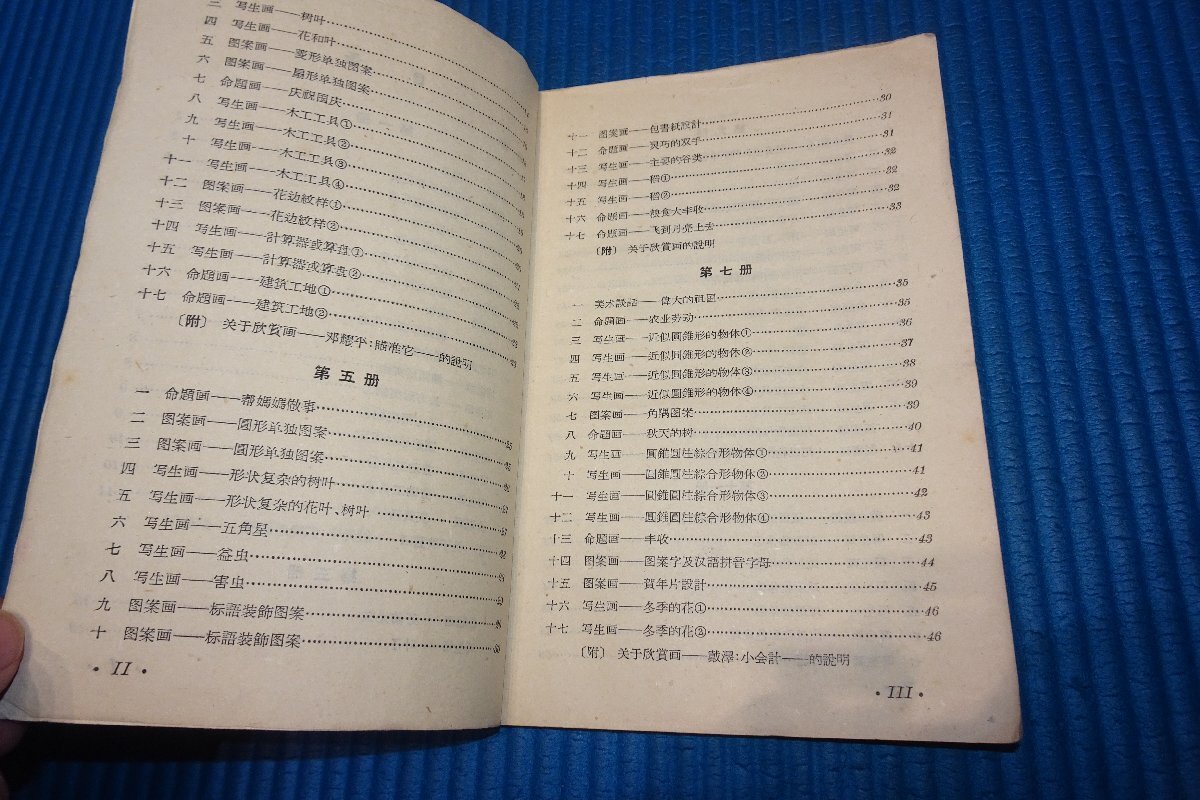 三 写生画——树叶
四 写生画——花和叶
五 图案画——菱形单独图案
六 图案画——扇形单独图案
七 命題画——庆祝国庆
八 写生画——木工工具①
九 写生画——木工工具②
十 写生画——木工工具③
十一 写生画——木工工具④
十二 图案画——花边紋样①
十三 图案画——花边紋样②
十四 写生画——計算器或算盘①
十五 写生画——計算器或算盘②
十六 命題画——建筑工地①
十七 命題画——建筑工地②
〔附〕 关于欣賞画——邓耀平：瞄准它——的說明
第五册
一 命題画——帮媽媽做事
二 图案画——圆形单独图案
三 图案画——圆形单独图案
四 写生画——形状复杂的树叶
五 写生画——形状复杂的花叶、树叶
六 写生画——五角星
七 写生画——益虫
八 写生画——害虫
九 图案画——标語装飾图案
十 图案画——标語装飾图案
· II ·
十一 图案画——包書紙設計 30
十二 命題画——灵巧的双手 31
十三 写生画——主要的谷类 31
十四 写生画——稻① 32
十五 写生画——稻② 32
十六 命題画——粮食大丰收 32
十七 命題画——飞到月亮上去 33
〔附〕 关于欣賞画的說明
第七册
一 美术談話——偉大的祖国 35
二 命題画——农业劳动 35
三 写生画——近似圆錐形的物体① 36
四 写生画——近似圆錐形的物体② 37
五 写生画——近似圆錐形的物体③ 38
六 写生画——近似圆錐形的物体④ 39
七 图案画——角隅图案 39
八 命題画——秋天的树 40
九 写生画——圓錐圓柱綜合形物体① 41
十 写生画——圓錐圓柱綜合形物体② 41
十一 写生画——圓錐圓柱綜合形物体③ 42
十二 写生画——圓錐圓柱綜合形物体④ 43
十三 命題画——丰收 43
十四 图案画——图案字及汉語拼音字母 44
十五 图案画——賀年片設計 45
十六 写生画——冬季的花① 46
十七 写生画——冬季的花② 46
〔附〕 关于欣賞画——戴澤：小会計——的說明
· III ·